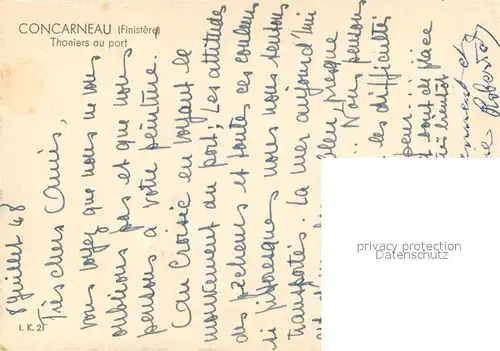 CONCARNEAU (Finistère)
Thoniers au port
8 Juillet 48
Très chers Amis,
vous voyez que nous ne vous
oublions pas et que nous
pensons à votre peinture.
Au Croisic en voyant le
mouvement du port, les attitudes
des pêcheurs et toutes ces couleurs
si pittoresques, nous nous sentons
transportés. La mer aujourd'hui
bleu presque
Nous pensons
les difficultés
peur...
I. K. 21
privacy protection
oldthing.de